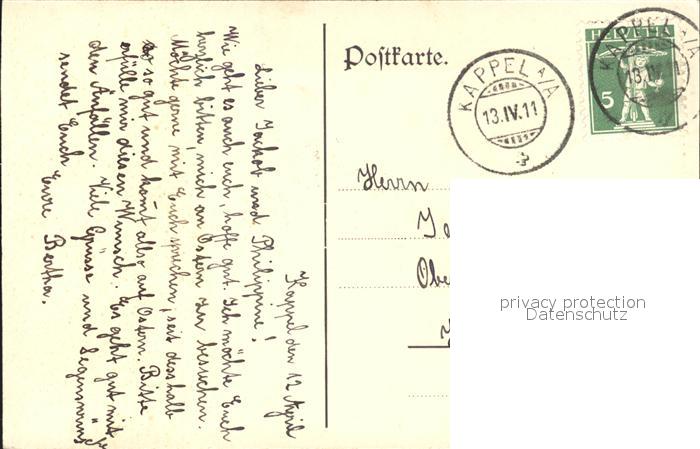 Postkarte.
KAPPEL a/A
13.IV.11
HELVETIA
5
KAPPEL a/A
13.IV.11
Herrn
privacy protection
Datenschutz
Kappel den 12 April
Lieber Jackob und Philippine!
Wie geht es auch euch, hoffe gut. Ich möchte Euch
herzlich bitten, mich an Ostern zu besuchen.
Möchte gerne mit Euch sprechen, seit desshalb
so gut und komt allso auf Ostern. Bitte
erfülle mir diesen Wunsch. Es geht gut mit
den Anfällen. Viel Grüsse und Segenswünsche
sendet Euch
Eure Bertha.